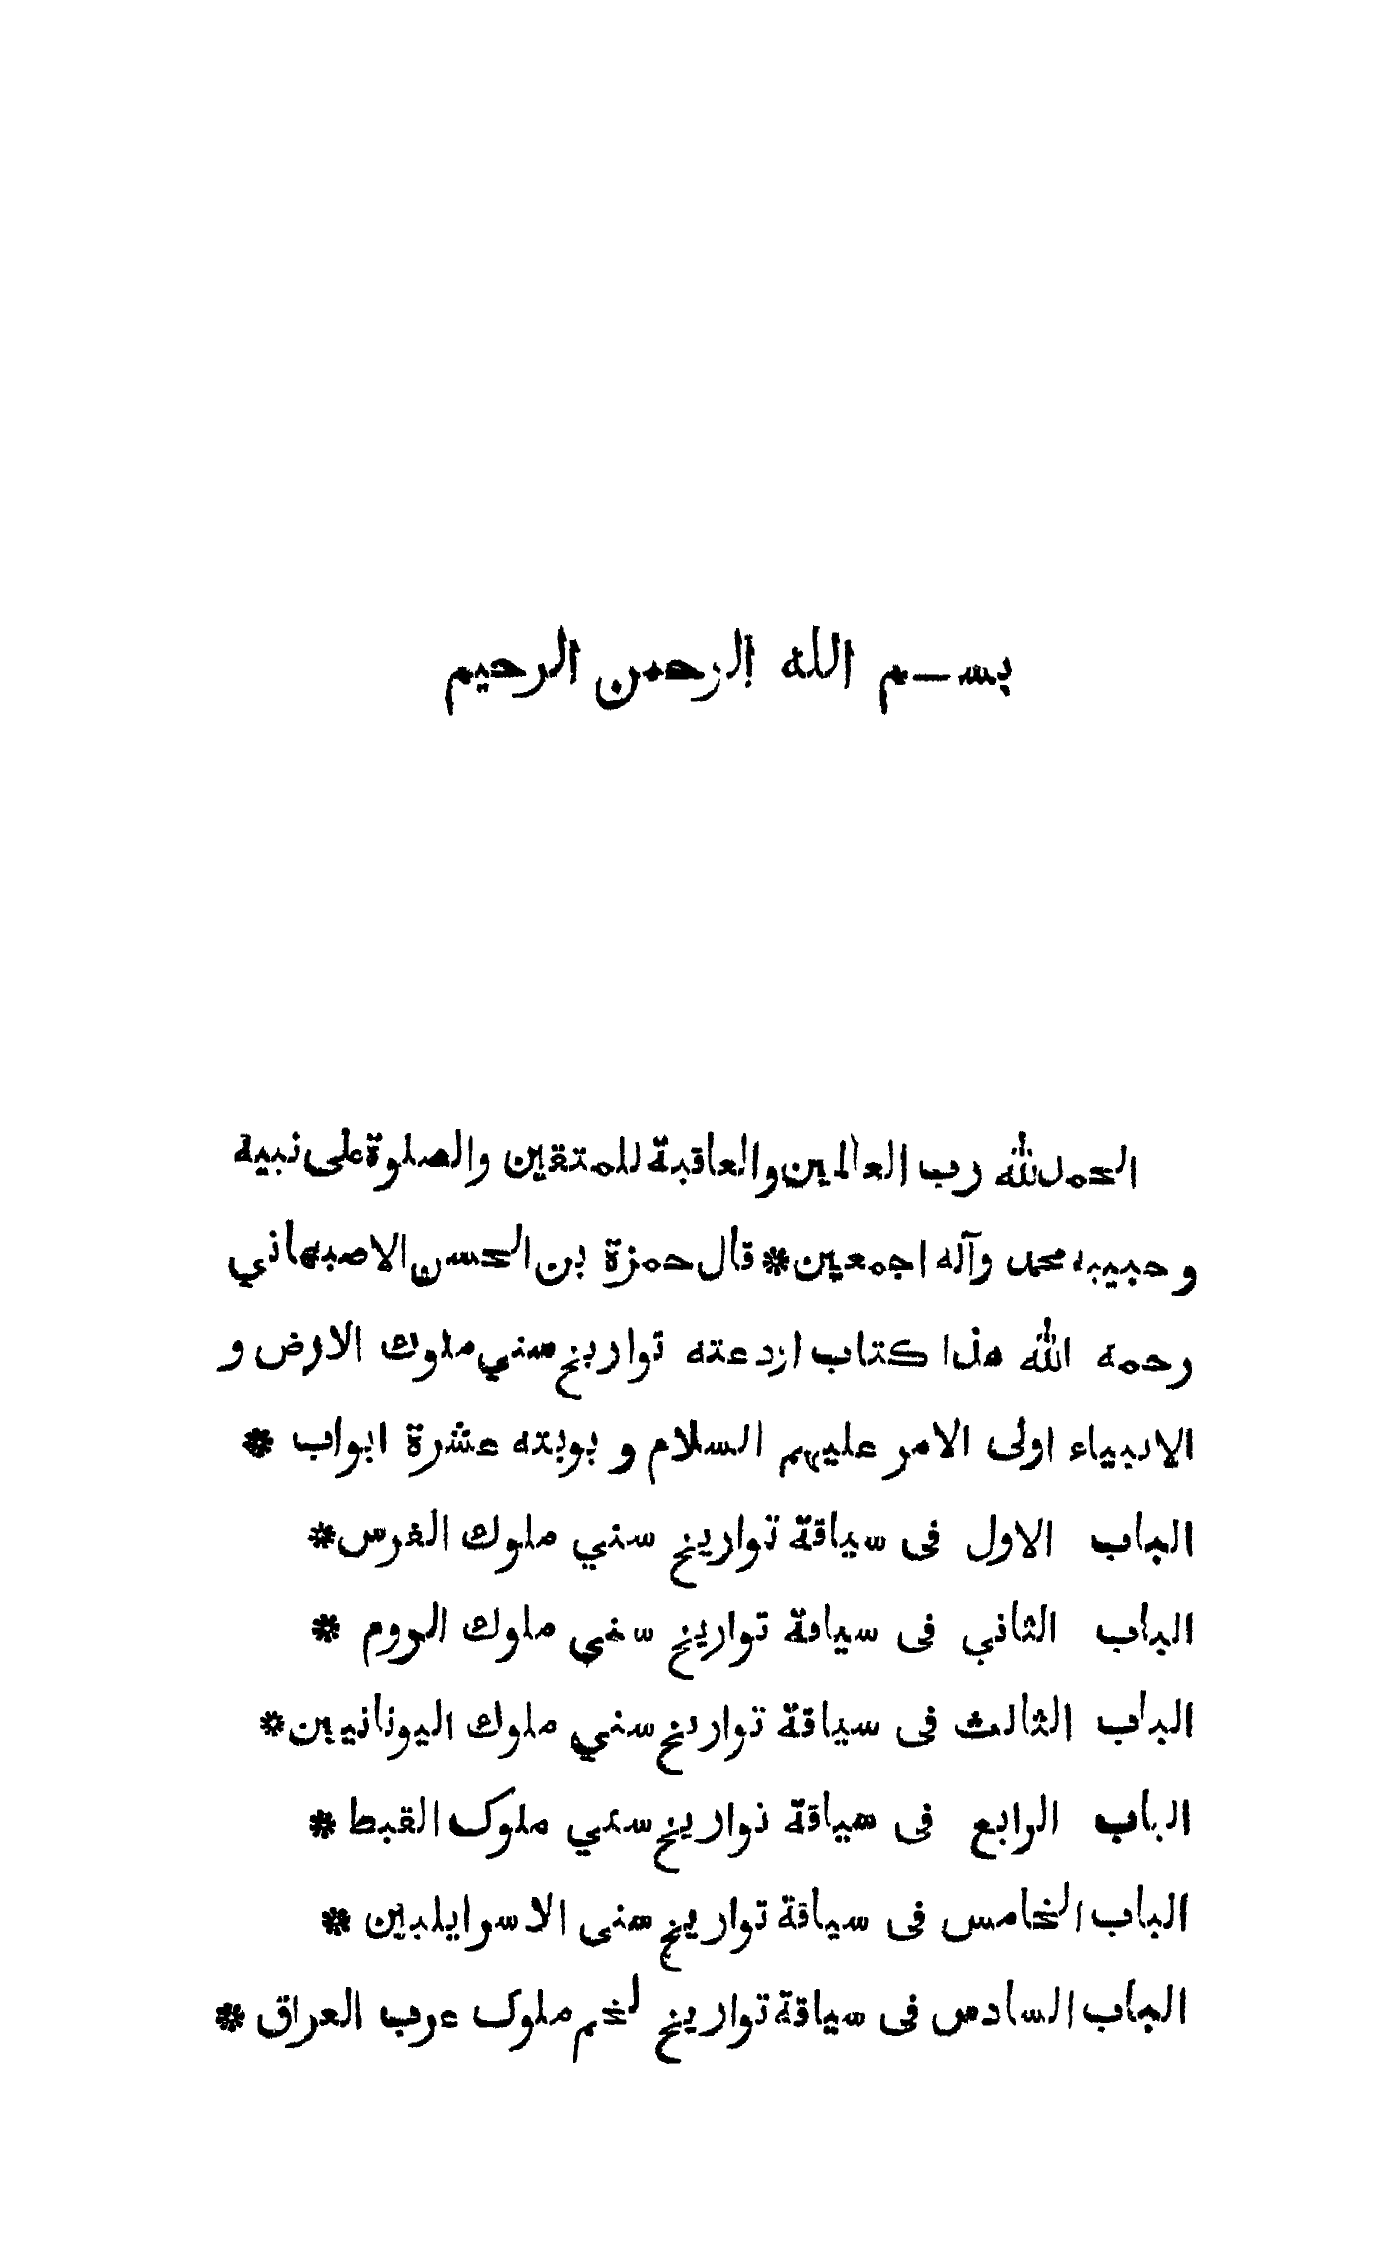 بســم الله الرحمن الرحيم
الحمد لله رب العالمين والعاقبة للمتقين والصلوة على نبيه
و حبيبه محمد وآله اجمعين * قال حمزة بن الحسن الاصبهاني
رحمه الله هذا كتاب ازدعته تواريخ سني ملوك الارض و
الانبياء اولى الامر عليهم السلام و بوبته عشرة ابواب *
الباب الاول فى سياقة تواريخ سني ملوك الفرس *
الباب الثاني فى سياقة تواريخ سني ملوك الروم *
الباب الثالث فى سياقة تواريخ سني ملوك اليونانيين *
الباب الرابع فى سياقة تواريخ سني ملوك القبط *
الباب الخامس فى سياقة تواريخ سنى الاسرايليين *
الباب السادس فى سياقة تواريخ لخم ملوك عرب العراق *